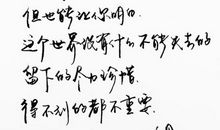 但也能让你明白
这个世界没有什么不能失去的
留下的尽力珍惜
得不到的都不重要